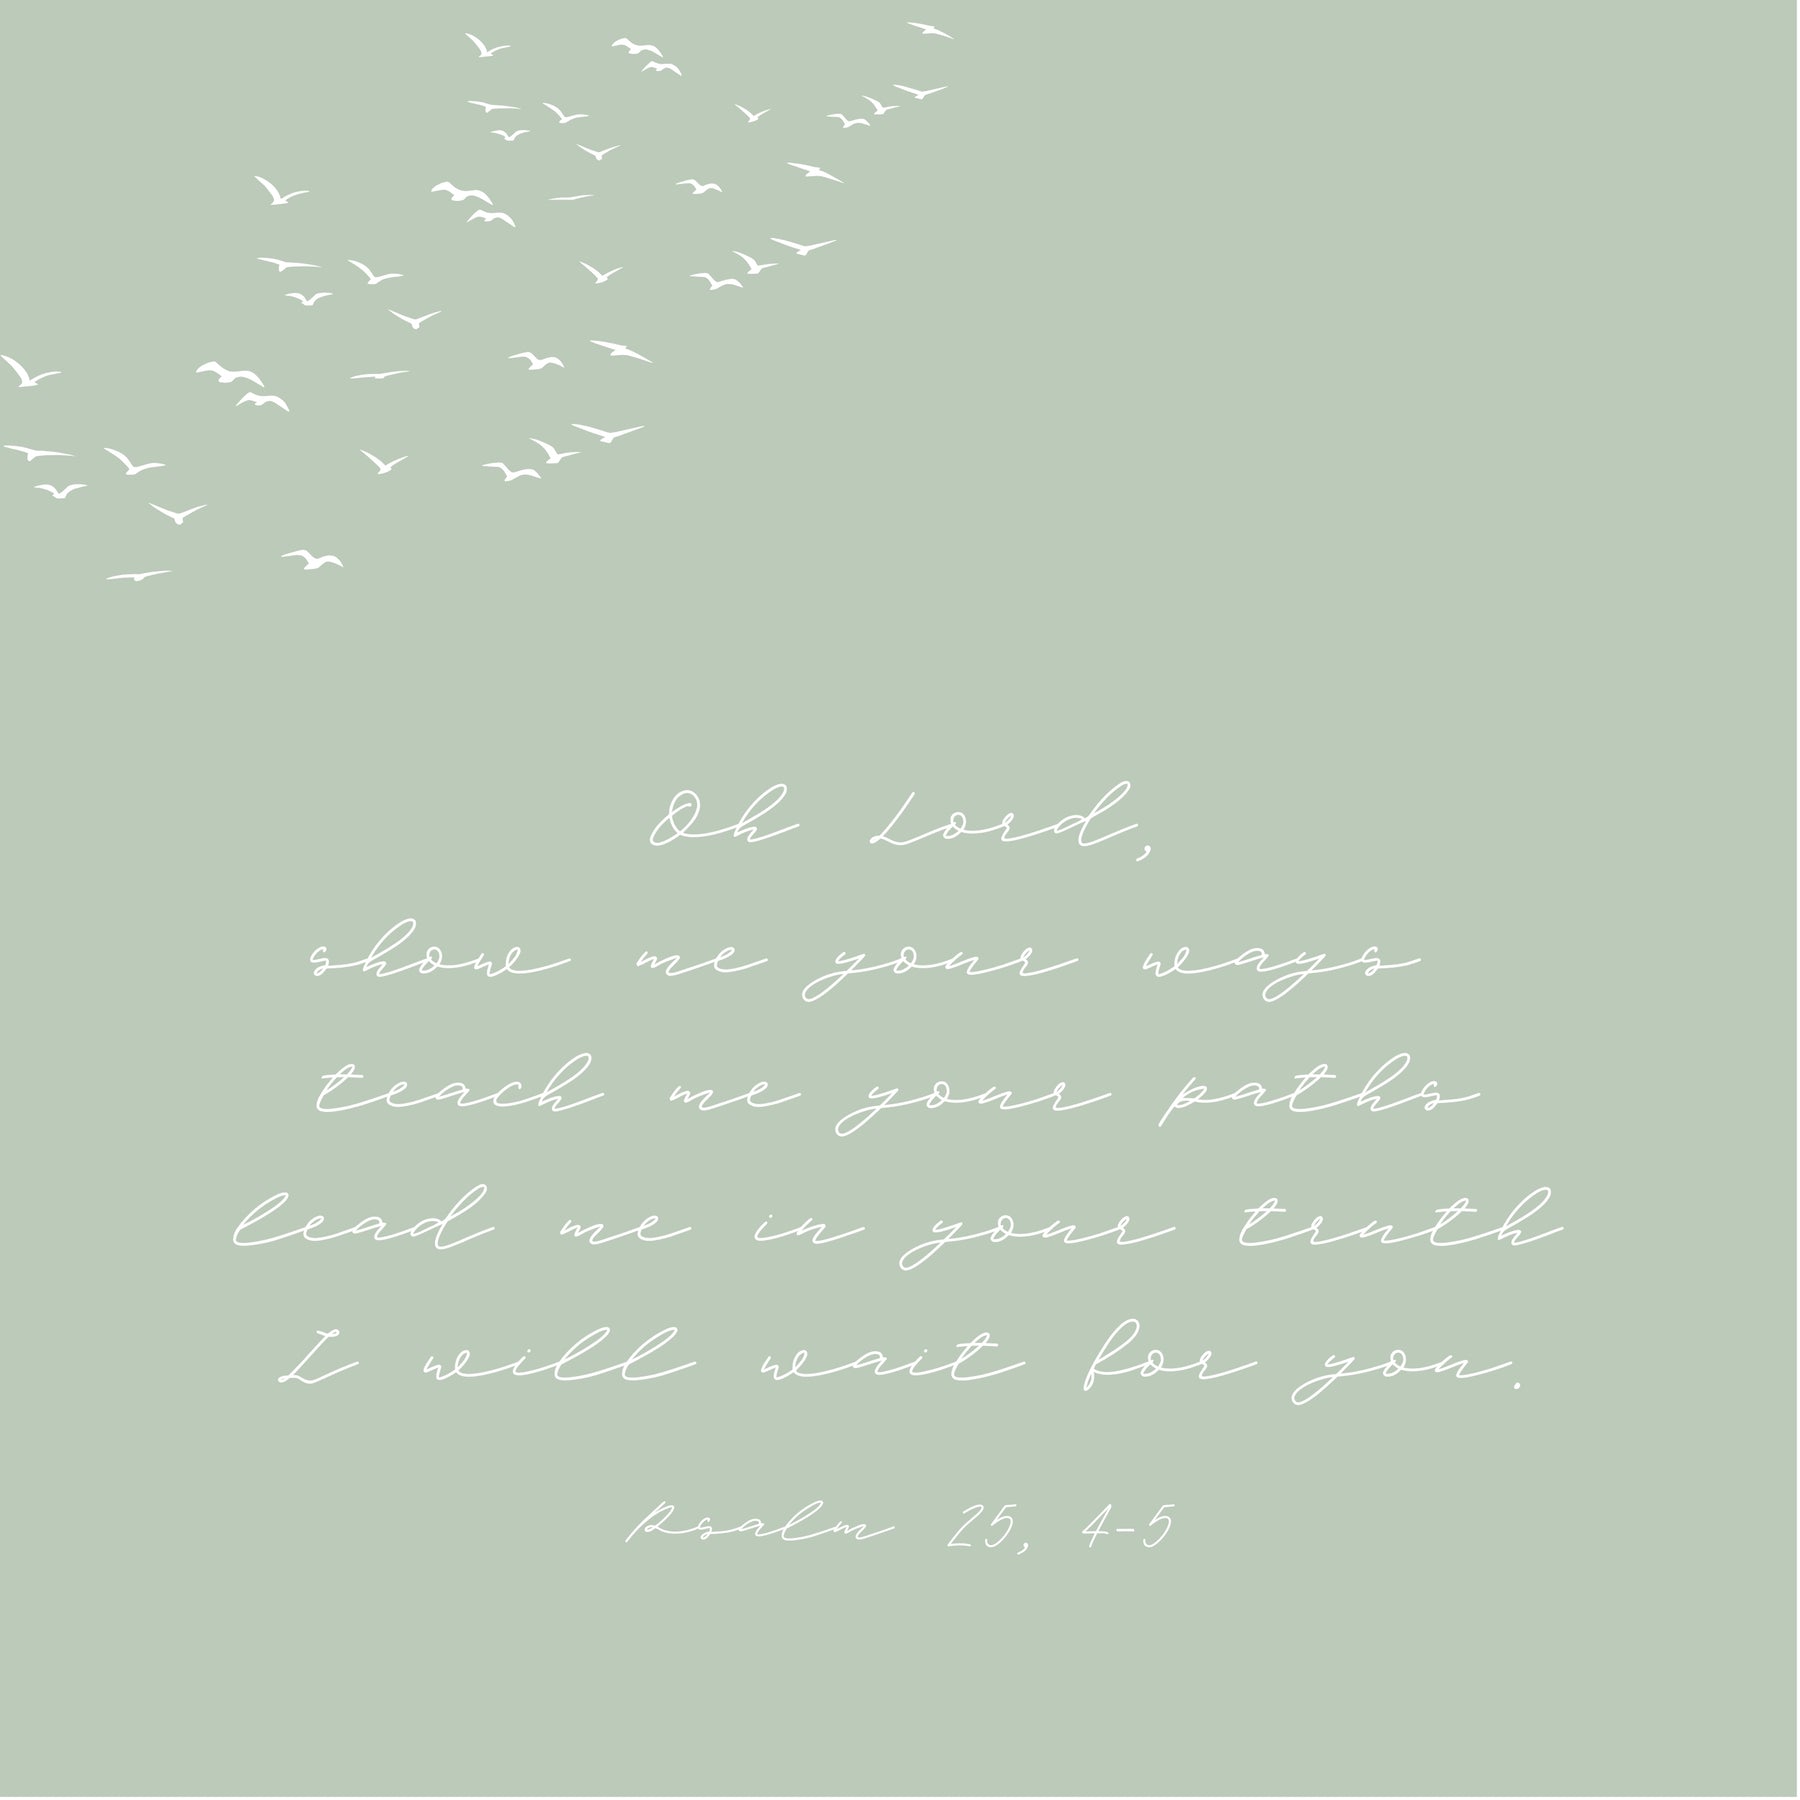 Oh Lord,
show me your ways
teach me your paths
lead me in your truth
I will wait for you.
Psalm 25, 4-5